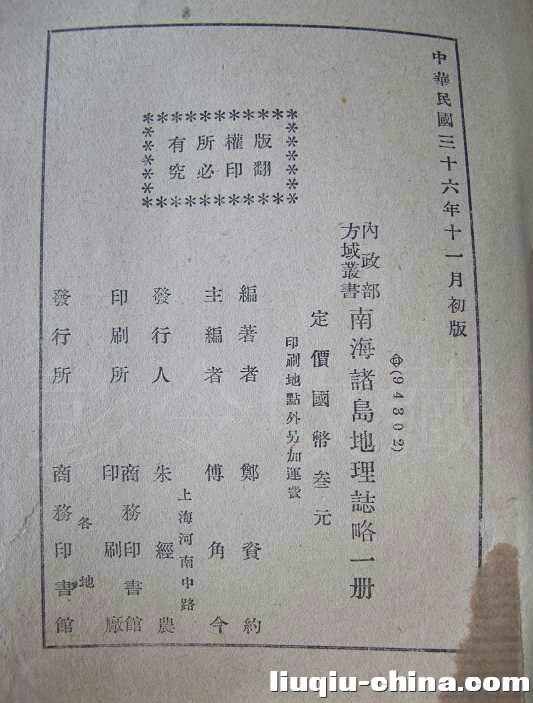 中華民國三十六年十一月初版
㊥(94302)
內政部方域叢書 南海諸島地理誌略一册
定價國幣叁元
印刷地點外另加運費
版權所有
翻印必究
編著者 鄭資約
主編者 傅角今
上海河南中路
發行人 朱經農
印刷所 商務印書館印刷廠
各地
發行所 商務印書館
liuqiu-china.com